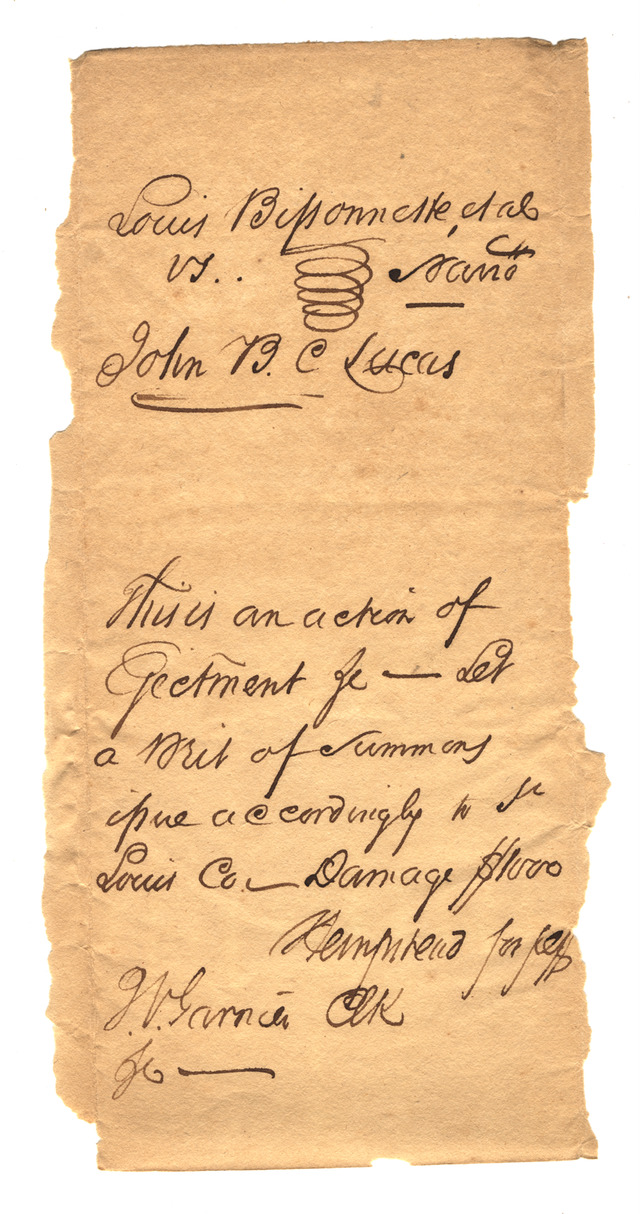 Louis Bissonnette, et al
vs..
John B. C Lucas
This is an action of
Ejectment &c — Let
a Writ of Summons
issue accordingly to St
Louis Co. — Damage $1000
Hempstead for
J. V. Garnier Clk
&c —